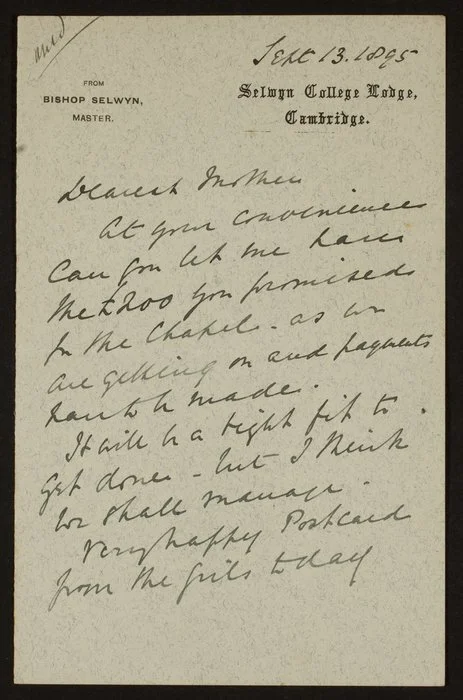 ansd
Sept 13. 1895
FROM
BISHOP SELWYN,
MASTER.
Selwyn College Lodge,
Cambridge.
Dearest Mother
At your convenience
Can you let me have
the £200 you promised
for the Chapel - as we
are getting on and payments
have to be made.
It will be a tight fit to
get done - but I think
we shall manage.
Very happy Postcard
from the girls today